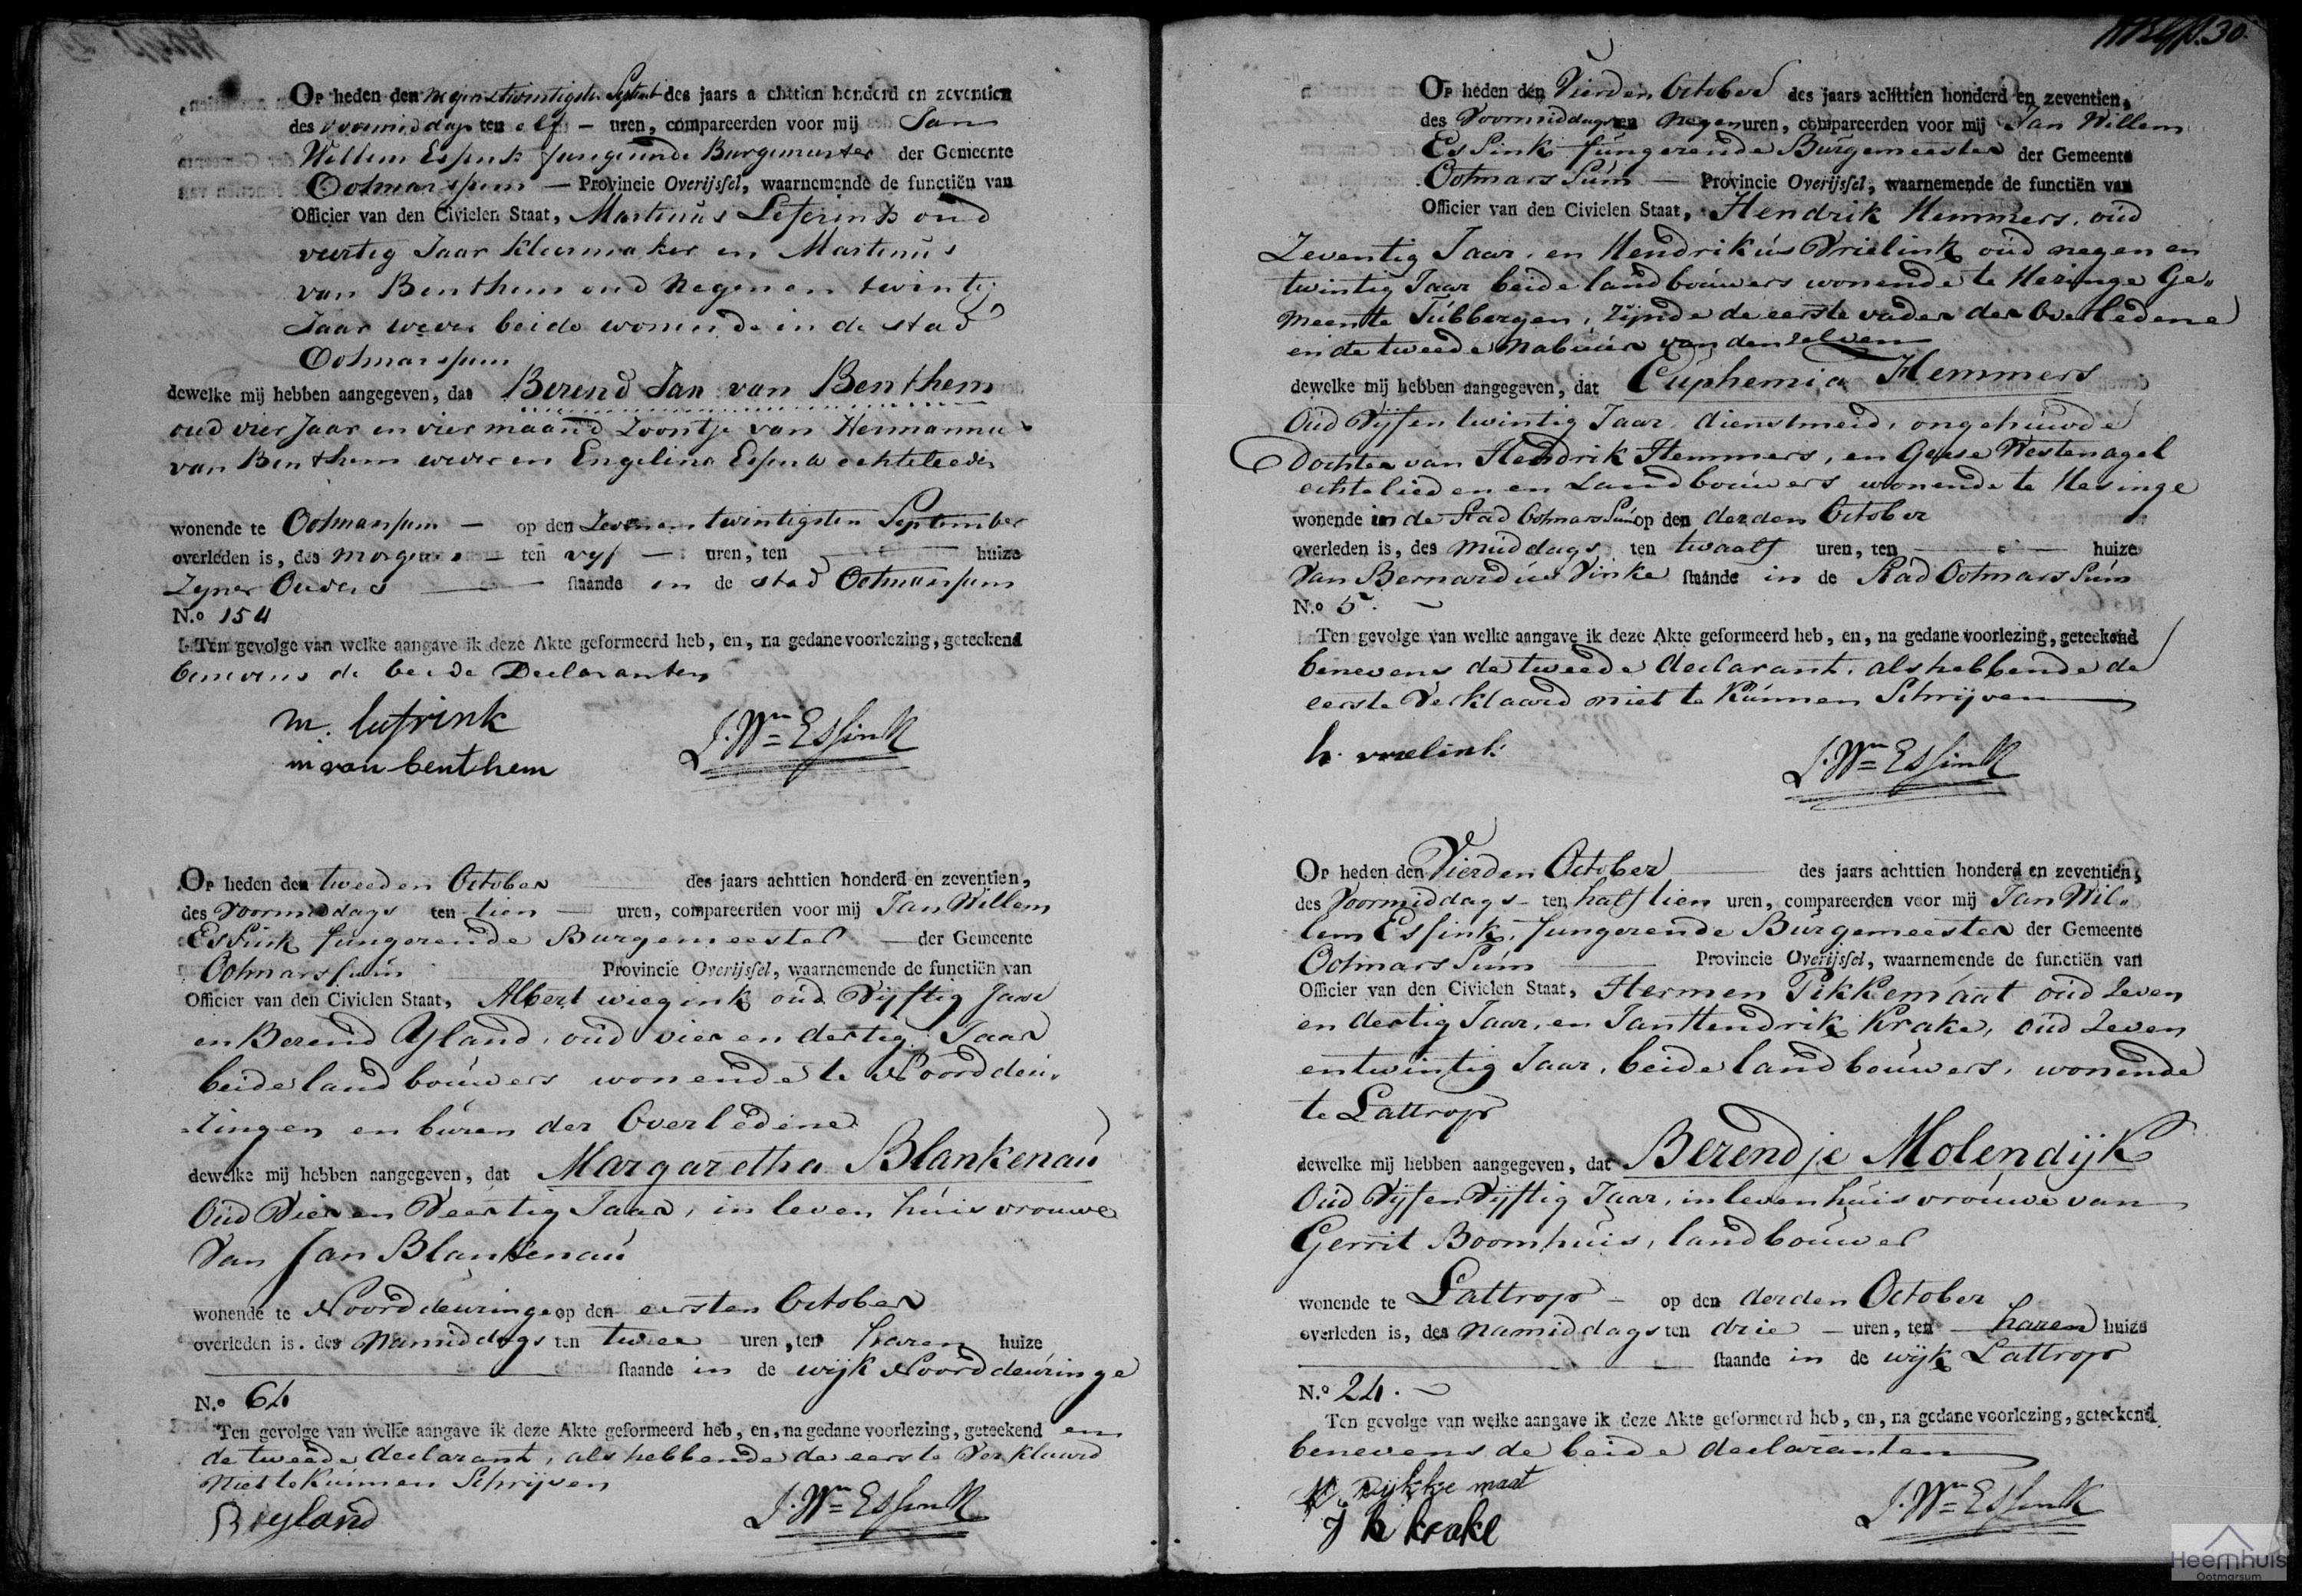 Op heden den negenstwintigste Septemb des jaars achttien honderd en zeventien
des voormiddags ten elf – uren, compareerden voor mij Jan
Willem Essink fungerende Burgemeester der Gemeente
Ootmarssum — Provincie Overijssel, waarnemende de functiën van
Officier van den Civielen Staat, Martinus Leferink oud
veertig Jaar kleermaker en Martinus
van Benthem oud Negen en twintig
Jaar wever beide wonende in de stad
Ootmarssum
dewelke mij hebben aangegeven, dat Berend Jan van Benthem
oud vier Jaar en vier maand Zoontje van Hermannus
van Benthem wever en Engelina Essink echtelieden
wonende te Ootmarssum – op den Zevenentwintigsten September
overleden is, des morgens – ten vyf – uren, ten — huize
Zyner Ouders — staande in de stad Ootmarssum
N.o 154
Ten gevolge van welke aangave ik deze Akte geformeerd heb, en, na gedane voorlezing, geteekend
benevens de beide Declaranten
m. lefrink
m van benthem
J. Wm Essink
Op heden den tweeden October des jaars achttien honderd en zeventien,
des Voormiddags ten tien — uren, compareerden voor mij Jan Willem
Essink fungerende Burgemeester — der Gemeente
Ootmarssum — Provincie Overijssel, waarnemende de functiën van
Officier van den Civielen Staat, Albert wiegink oud Vijftig Jaar
en Berend Yland, oud vier en dertig Jaar
beide landbouwers wonende te Noorddeu-
ringen en buren der Overledene
dewelke mij hebben aangegeven, dat Margaretha Blankenau
Oud Vier en Veertig Jaar, in leven huisvrouwe
Van Jan Blankenau
wonende te Noorddeuringe op den eersten October
overleden is, des Namiddags ten twee uren, ten haren huize
— staande in de wijk Noorddeuringe
N.o 64
Ten gevolge van welke aangave ik deze Akte geformeerd heb, en, na gedane voorlezing, geteekend en
de tweede declarant, als hebbende de eerste Verklaard
Niet te Kunnen Schrijven
B yland
J. Wm Essink
30.
Op heden den Vierden October des jaars achttien honderd en zeventien,
des Voormiddags ten Negen uren, compareerden voor mij Jan Willem
Essink fungerende Burgemeester der Gemeente
Ootmarssum — Provincie Overijssel, waarnemende de functiën van
Officier van den Civielen Staat, Hendrik Hemmers, oud
Zeventig Jaar, en Hendrikus Vrielink oud negen en
twintig Jaar beide landbouwers wonende te Hezinge Ge-
meente Tubbergen, zijnde de eerste vader der Overledene
en de tweede Nabuur van denzelven
dewelke mij hebben aangegeven, dat Euphemia Hemmers
Oud Vijfentwintig Jaar, dienstmeid, ongehuwde
Dochter van Hendrik Hemmers, en Geese Nestenagel
echtelieden en Landbouwers wonende te Hesinge
wonende in de Stad Ootmarssum op den derden October
overleden is, des middags ten twaalf uren, ten — huize
Van Bernardus Vinke staande in de Stad Ootmarssum
N.o 5.
Ten gevolge van welke aangave ik deze Akte geformeerd heb, en, na gedane voorlezing, geteekend
benevens de tweede declarant, als hebbende de
eerste Verklaard niet te Kunnen Schrijven
h. vrielink
J. Wm Essink
Op heden den Vierden October — des jaars achttien honderd en zeventien,
des Voormiddags – ten half tien uren, compareerden voor mij Jan Wil-
lem Essink, fungerende Burgemeester der Gemeente
Ootmarssum — Provincie Overijssel, waarnemende de functiën van
Officier van den Civielen Staat, Hermen Pikkemaat oud Zeven
en dertig Jaar, en Jan Hendrik Krake, oud Zeven
entwintig Jaar, beide landbouwers, wonende
te Lattrop
dewelke mij hebben aangegeven, dat Berendje Molendijk
Oud Vijfen Vijftig Jaar, in leven huisvrouwe van
Gerrit Boomhuis, landbouwer
wonende te Lattrop – op den derden October
overleden is, des Namiddags ten drie – uren, ten haren huize
— staande in de wijk Lattrop
N.o 24.
Ten gevolge van welke aangave ik deze Akte geformeerd heb, en, na gedane voorlezing, geteekend
benevens de beide declaranten
H. Pijkke maat
J h krake
J. Wm Essink
Heemhuis
Ootmarsum